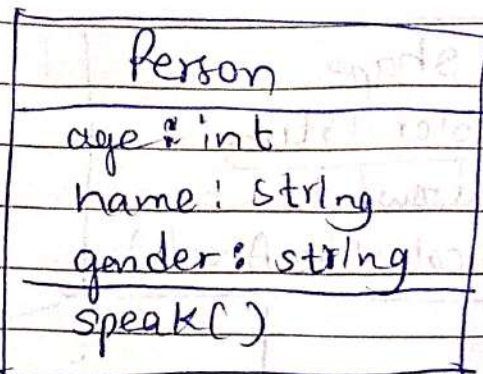 Person
age : int
name : string
gender : string
speak()